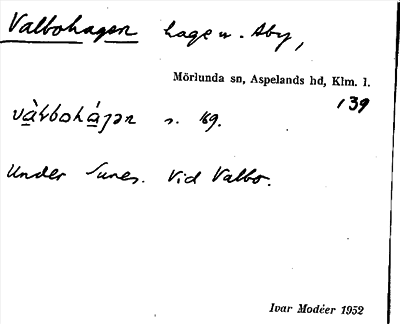 Valbohagen hage n. Åby,
Mörlunda sn, Aspelands hd, Klm. l.
139
s. 169.
Under Vid Valbo.
Ivar Modéer 1952